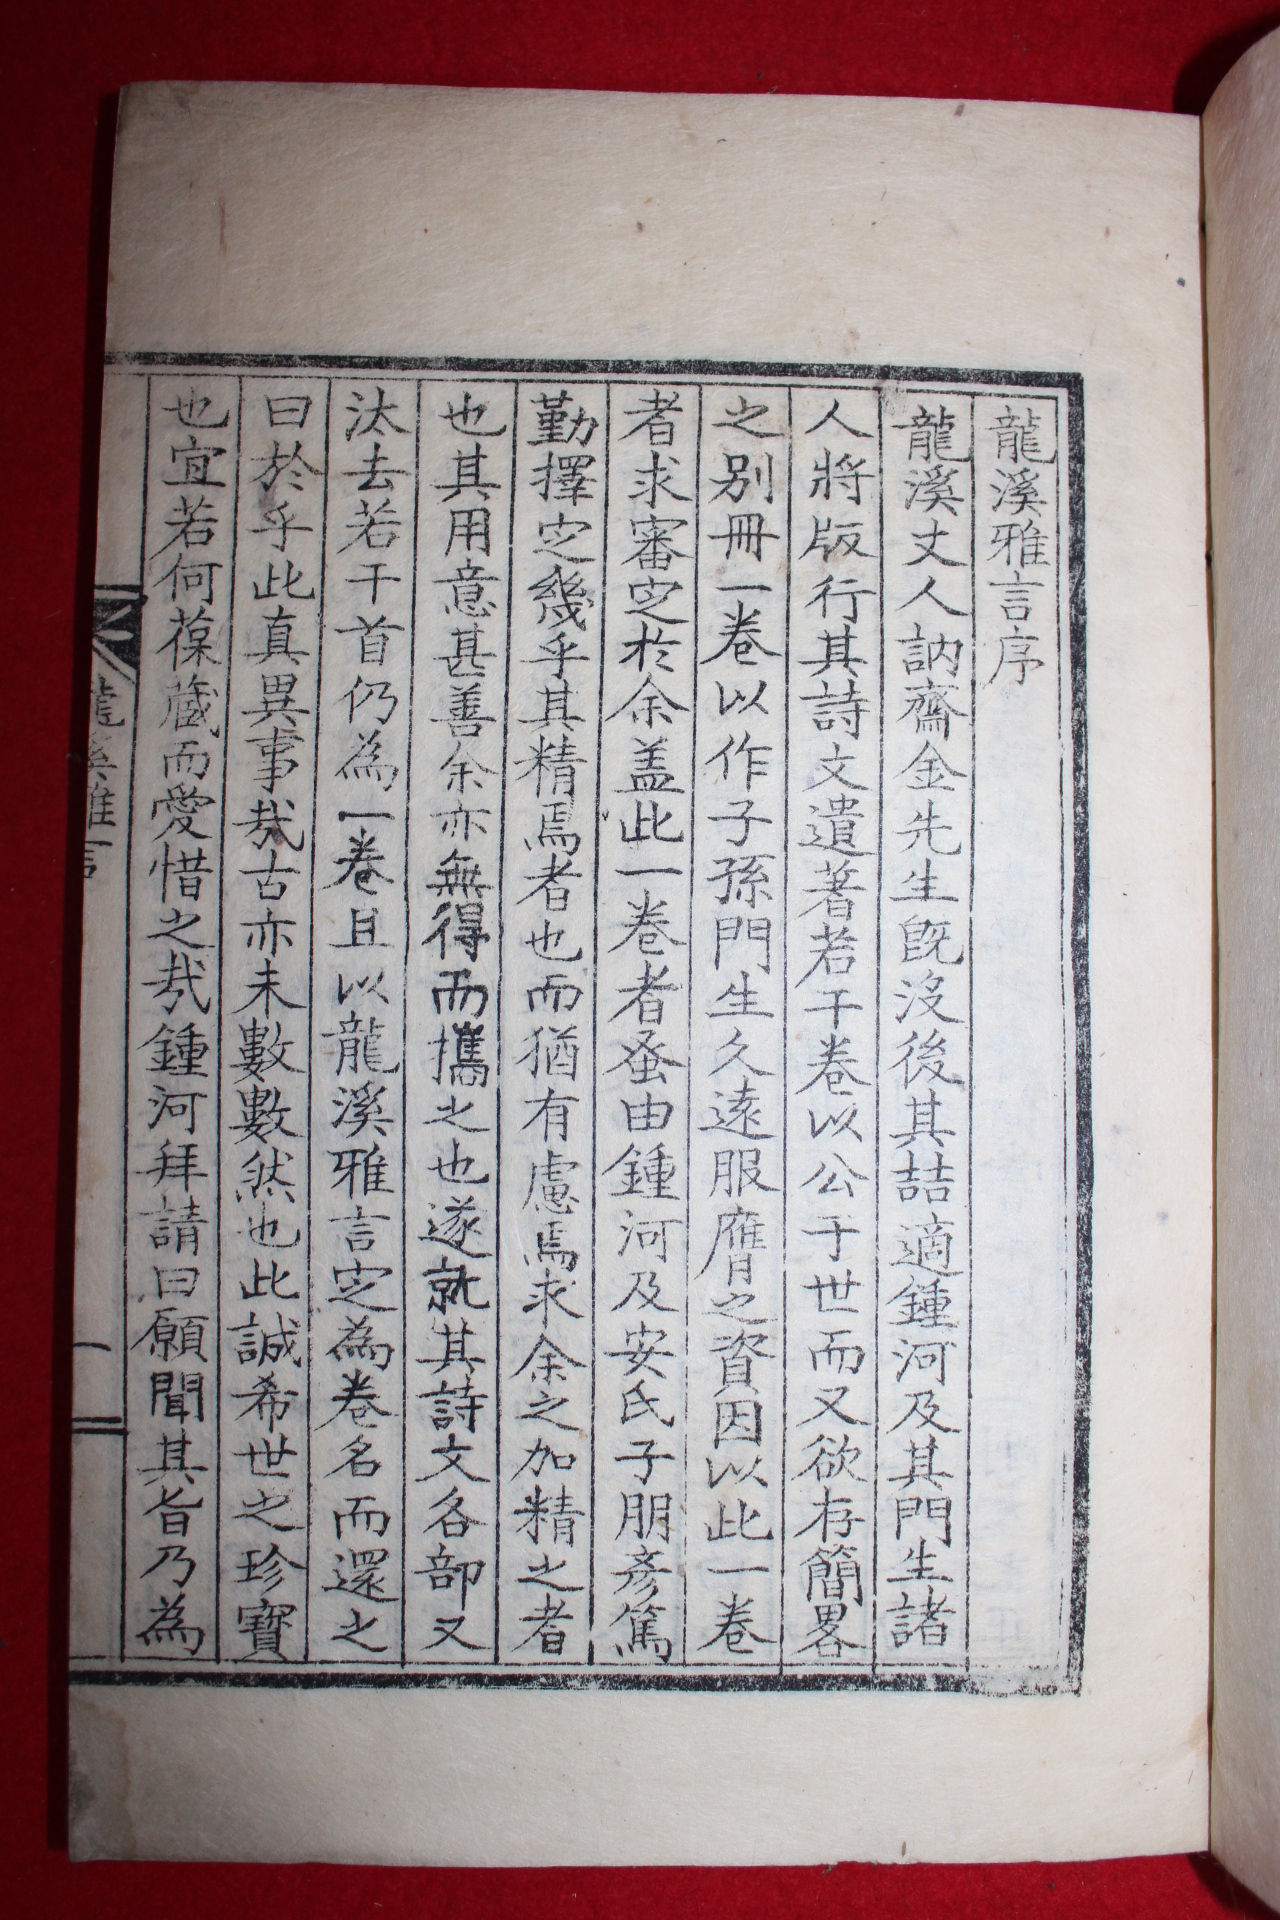 龍溪雅言序
龍溪丈人訥齋金先生旣沒後其喆適鍾河及其門生諸
人將版行其詩文遺著若干卷以公于世而又欲存簡畧
之別冊一卷以作子孫門生久遠服膺之資因以此一卷
者求審定於余盖此一卷者蚤由鍾河及安氏子朋彥篤
勤擇定幾乎其精焉者也而猶有慮焉求余之加精之者
也其用意甚善余亦無得而攜之也遂就其詩文各部又
汰去若干首仍為一卷且以龍溪雅言定為卷名而還之
曰於乎此真異事㦲古亦未數數然也此誠希世之珍寶
也宜若何葆蔵而愛惜之㦲鍾河拜請曰願聞其旨乃為
龍溪雅言
一